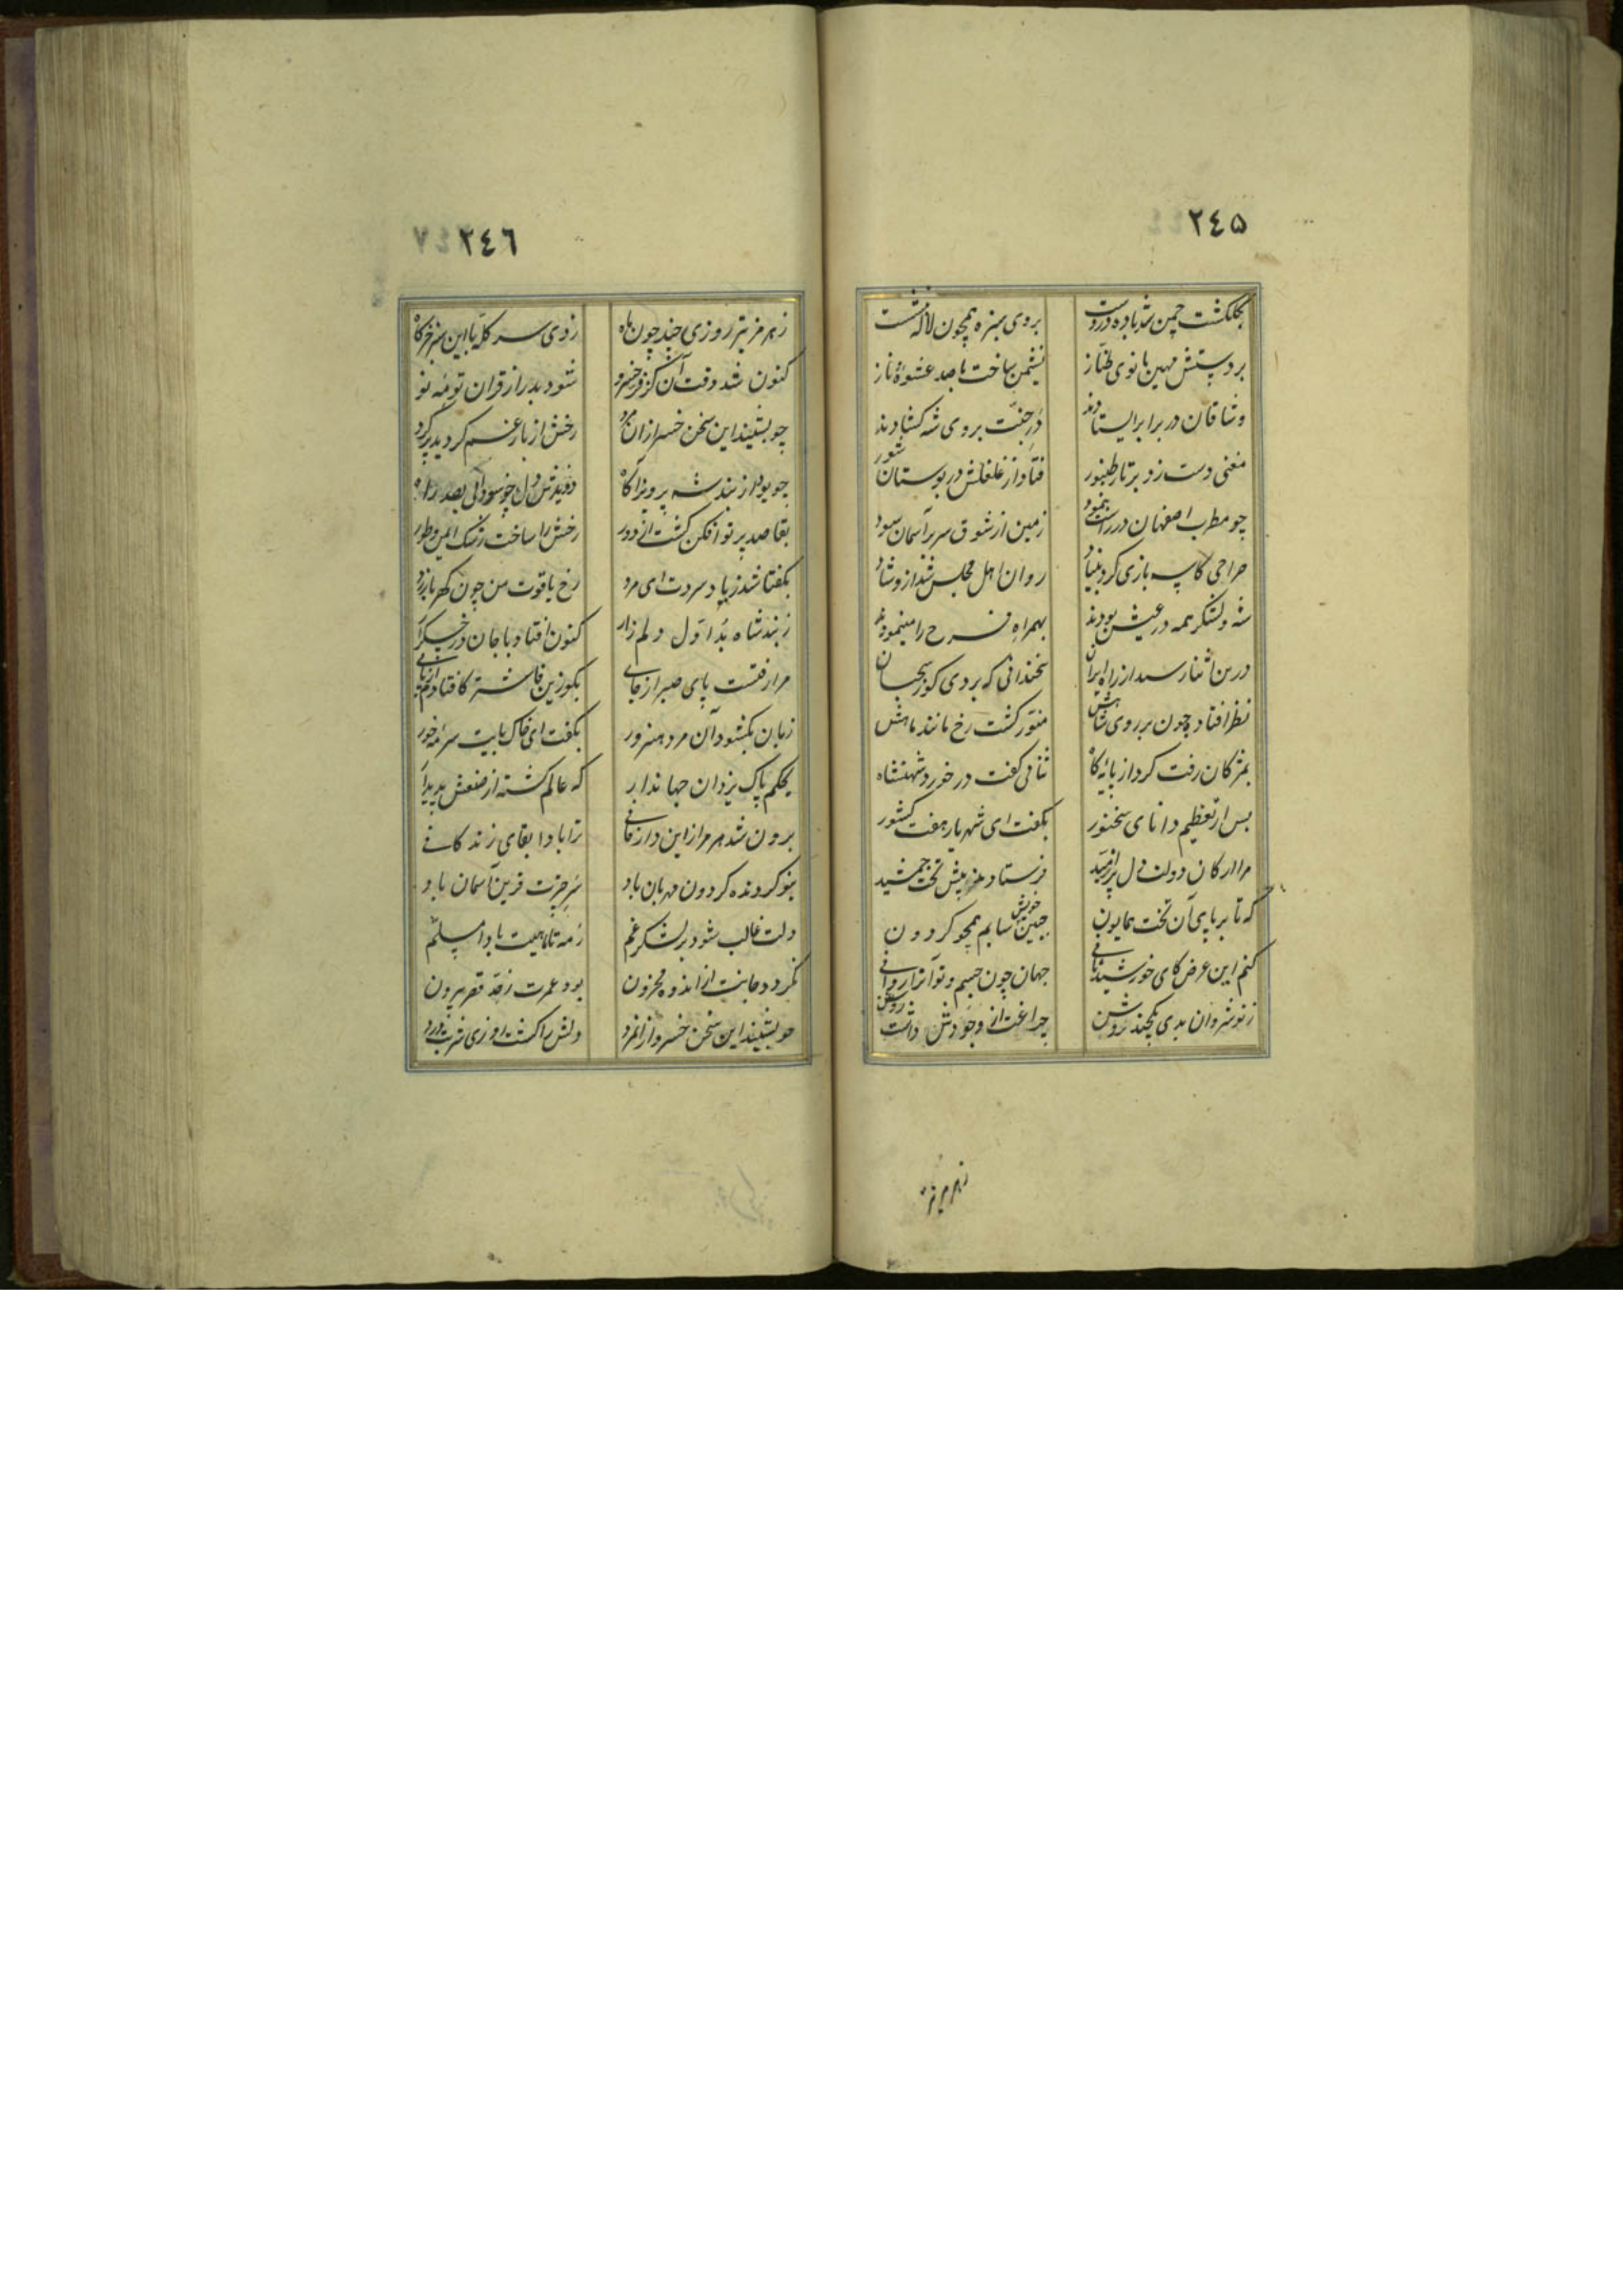 ۲٤۵
بگلگشت چمن شد باده در دست بروی سبزه همچون لاله بنشست
بر دستش مهین بانوی طناز نشیمن ساخت با صد عشوهٔ ناز
وشاقان در برابر ایستادند در جنت بروی شه گشادند
مغنی دست زد بر تار طنبور فتاد از غلغلش در بوستان شور
چو مطرب اصفهان در راست بنمود زمین از شوق سر بر آسمان سود
صراحی کاسه بازی کرد بنیاد روان اهل مجلس شد ازو شاد
شه و لشکر همه در عیش بودند بهمراه فرح ره مینمودند
درین اثنا رسید از راه ایران سخندانی که بردی گو ز سحبان
نظر افتاد چون بر روی شاهش منور گشت رخ مانند ماهش
بمژگان رفت گرد از پایه گاه ثنائی گفت در خورد شهنشاه
پس از تعظیم دانای سخنور بگفت ای شهریار هفت کشور
مرا ارکان دولت دل پر امید فرستادند پیش تخت جمشید
که تا بر پای آن تخت همایون جبین خویش سایم همچو گردون
کنم این عرض کای خورشید ثانی جهان چون جسم و تو آنرا روانی
ز نوشروان بدی یکچند روشن چراغت از وجودش داشت روغن
ز هرمز نیز
۲٤٦
ز هرمز نیز روزی چند چون ماه زدی سر کله با این سبز خرگاه
کنون شد وقت آن کز فر خسرو شود بدر از قران تو مه نو
چو بشنید این سخن خسرو از آن مرد رخش از بار غم گردید پر گرد
چو بود از بند شه پرویز آگاه
بقاصد پرتو افکن گشت از دور رخش را ساخت رشک ایمن و طور
بگفتا شد ز باد سردت ای مرد رخ یاقوت من چون کهربا زرد
ز بند شاه بد اول دلم زار کنون افتاد با جان در جگر
مرا رفتست پای صبر از جای بگو زین فاش تر کافتادم از پای
زبان بگشود آن مرد هنرور بگفت ای خاک پایت سرمهٔ خور
بحکم پاک یزدان جهاندار که عالم گشته از صنعش پدیدار
برون شد هرمز از این دار فانی ترا بادا بقای زندگانی
بتو گردنده گردون مهربان باد سر چترت قرین آسمان باد
دلت غالب شود بر لشکر غم ز مه تا ماهیت بادا مسلم
نگردد جانت از اندوه محزون بود عمرت ز حد قصر بیرون
چو بشنید این سخن خسرو از انمرد